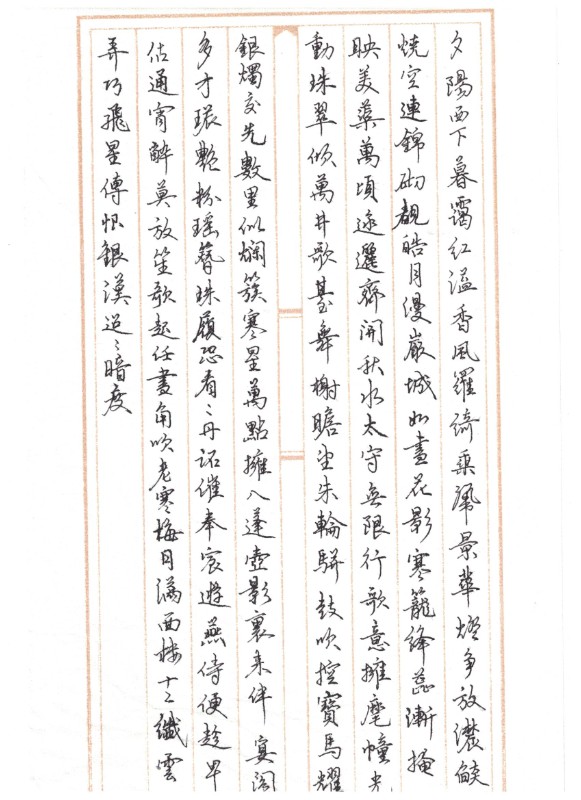 夕陽西下暮靄紅溢香風羅綺乘麗景華燈爭放濃燄
燒空連錦砌覩皓月浸嚴城如畫花影寒籠絳蕊漸掩
映芙蕖萬頃迤邐齊開秋水太守無限行歌意擁麾幢光
動珠翠傾萬井歌臺舞榭瞻望朱輪駢鼓吹控寶馬耀
銀燭交光數里似爛簇寒星萬點擁入蓬壺影裏來伴宴閣
多才環艷粉瑤簪珠履恐看〻丹詔催奉宸遊燕侍便趁早
佔通宵醉莫放笙歌起任畫角吹老寒梅月滿西樓十二纖雲
弄巧飛星傳恨銀漢迢〻暗度